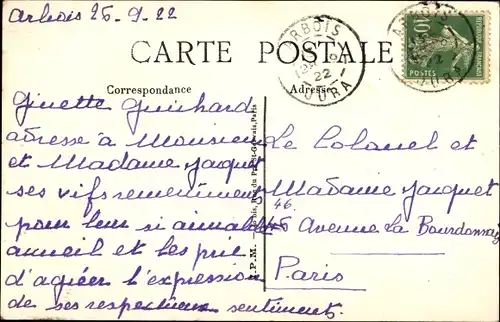 Arbois 25-9-22
CARTE POSTALE
Correspondance
Adresse
ARBOIS
22
JURA
10
POSTES
Ginette Guichard
adresse à Monsieur
et Madame Jacquet
ses vifs remerciements
pour leur si aimable
accueil et les prie
d'agréer l'expression
de ses respectueux sentiments.
A.P.M.
Paris
Le Colonel et
Madame Jacquet
46
Avenue La Bourdonnais
Paris